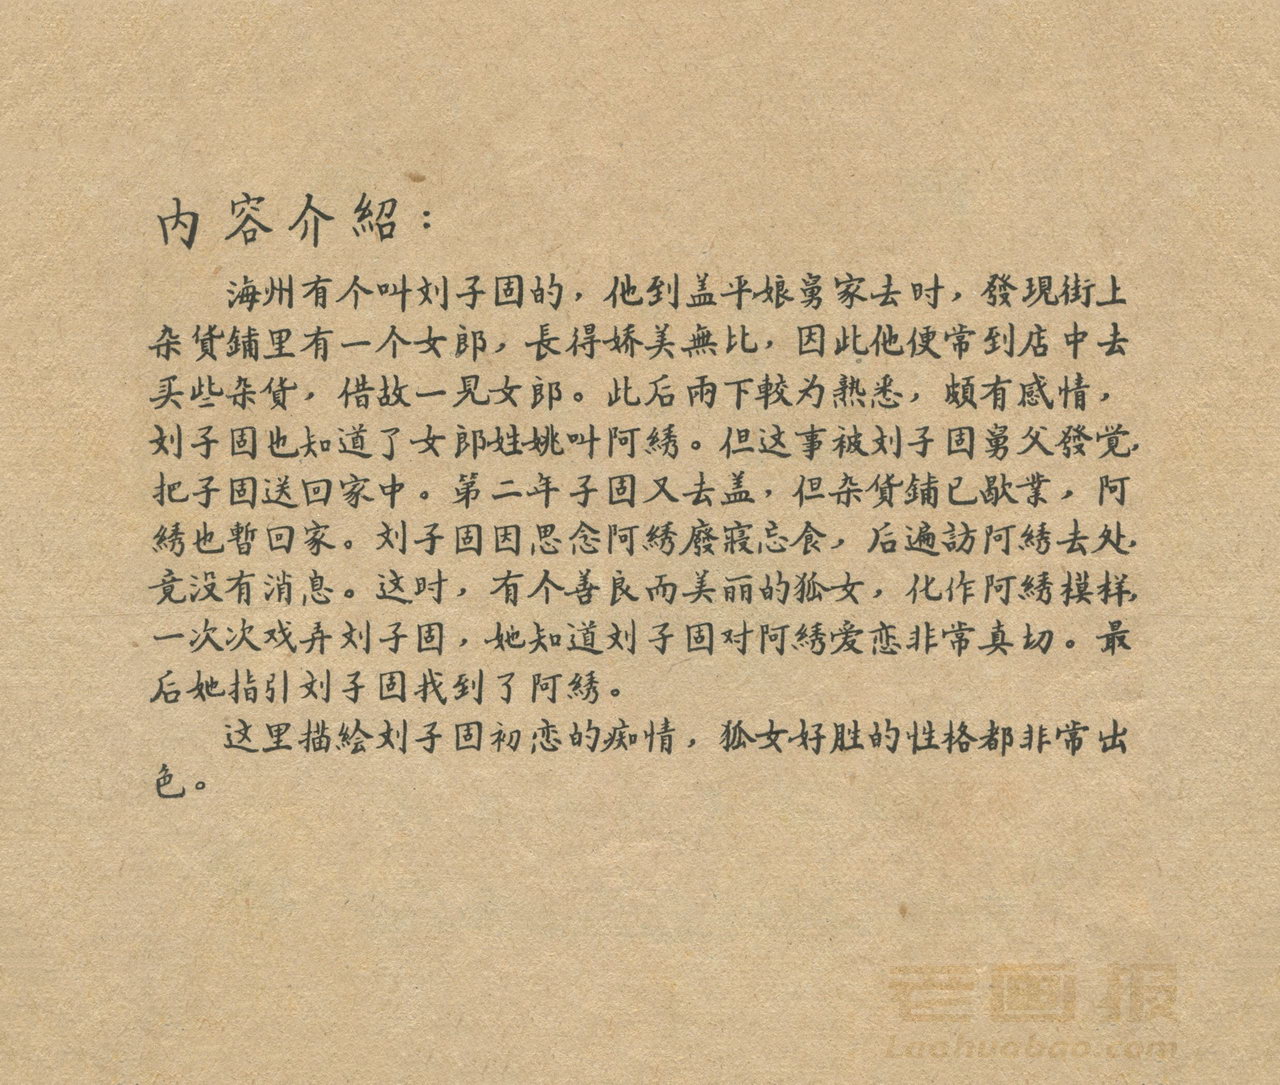 内容介紹：
海州有个叫刘子固的，他到盖平娘舅家去时，發現街上
杂貨鋪里有一个女郎，長得娇美無比，因此他便常到店中去
买些杂貨，借故一見女郎。此后兩下較为熟悉，頗有感情，
刘子固也知道了女郎姓姚叫阿綉。但这事被刘子固舅父發觉，
把子固送回家中。第二年子固又去盖，但杂貨鋪已歇業，阿
綉也暫回家。刘子固因思念阿綉廢寢忘食，后遍訪阿綉去处，
竟没有消息。这时，有个善良而美丽的狐女，化作阿綉模样，
一次次戏弄刘子固，她知道刘子固对阿綉爱恋非常真切。最
后她指引刘子固找到了阿綉。
这里描繪刘子固初恋的痴情，狐女好胜的性格都非常出
色。
老画报
Laohuabao.com